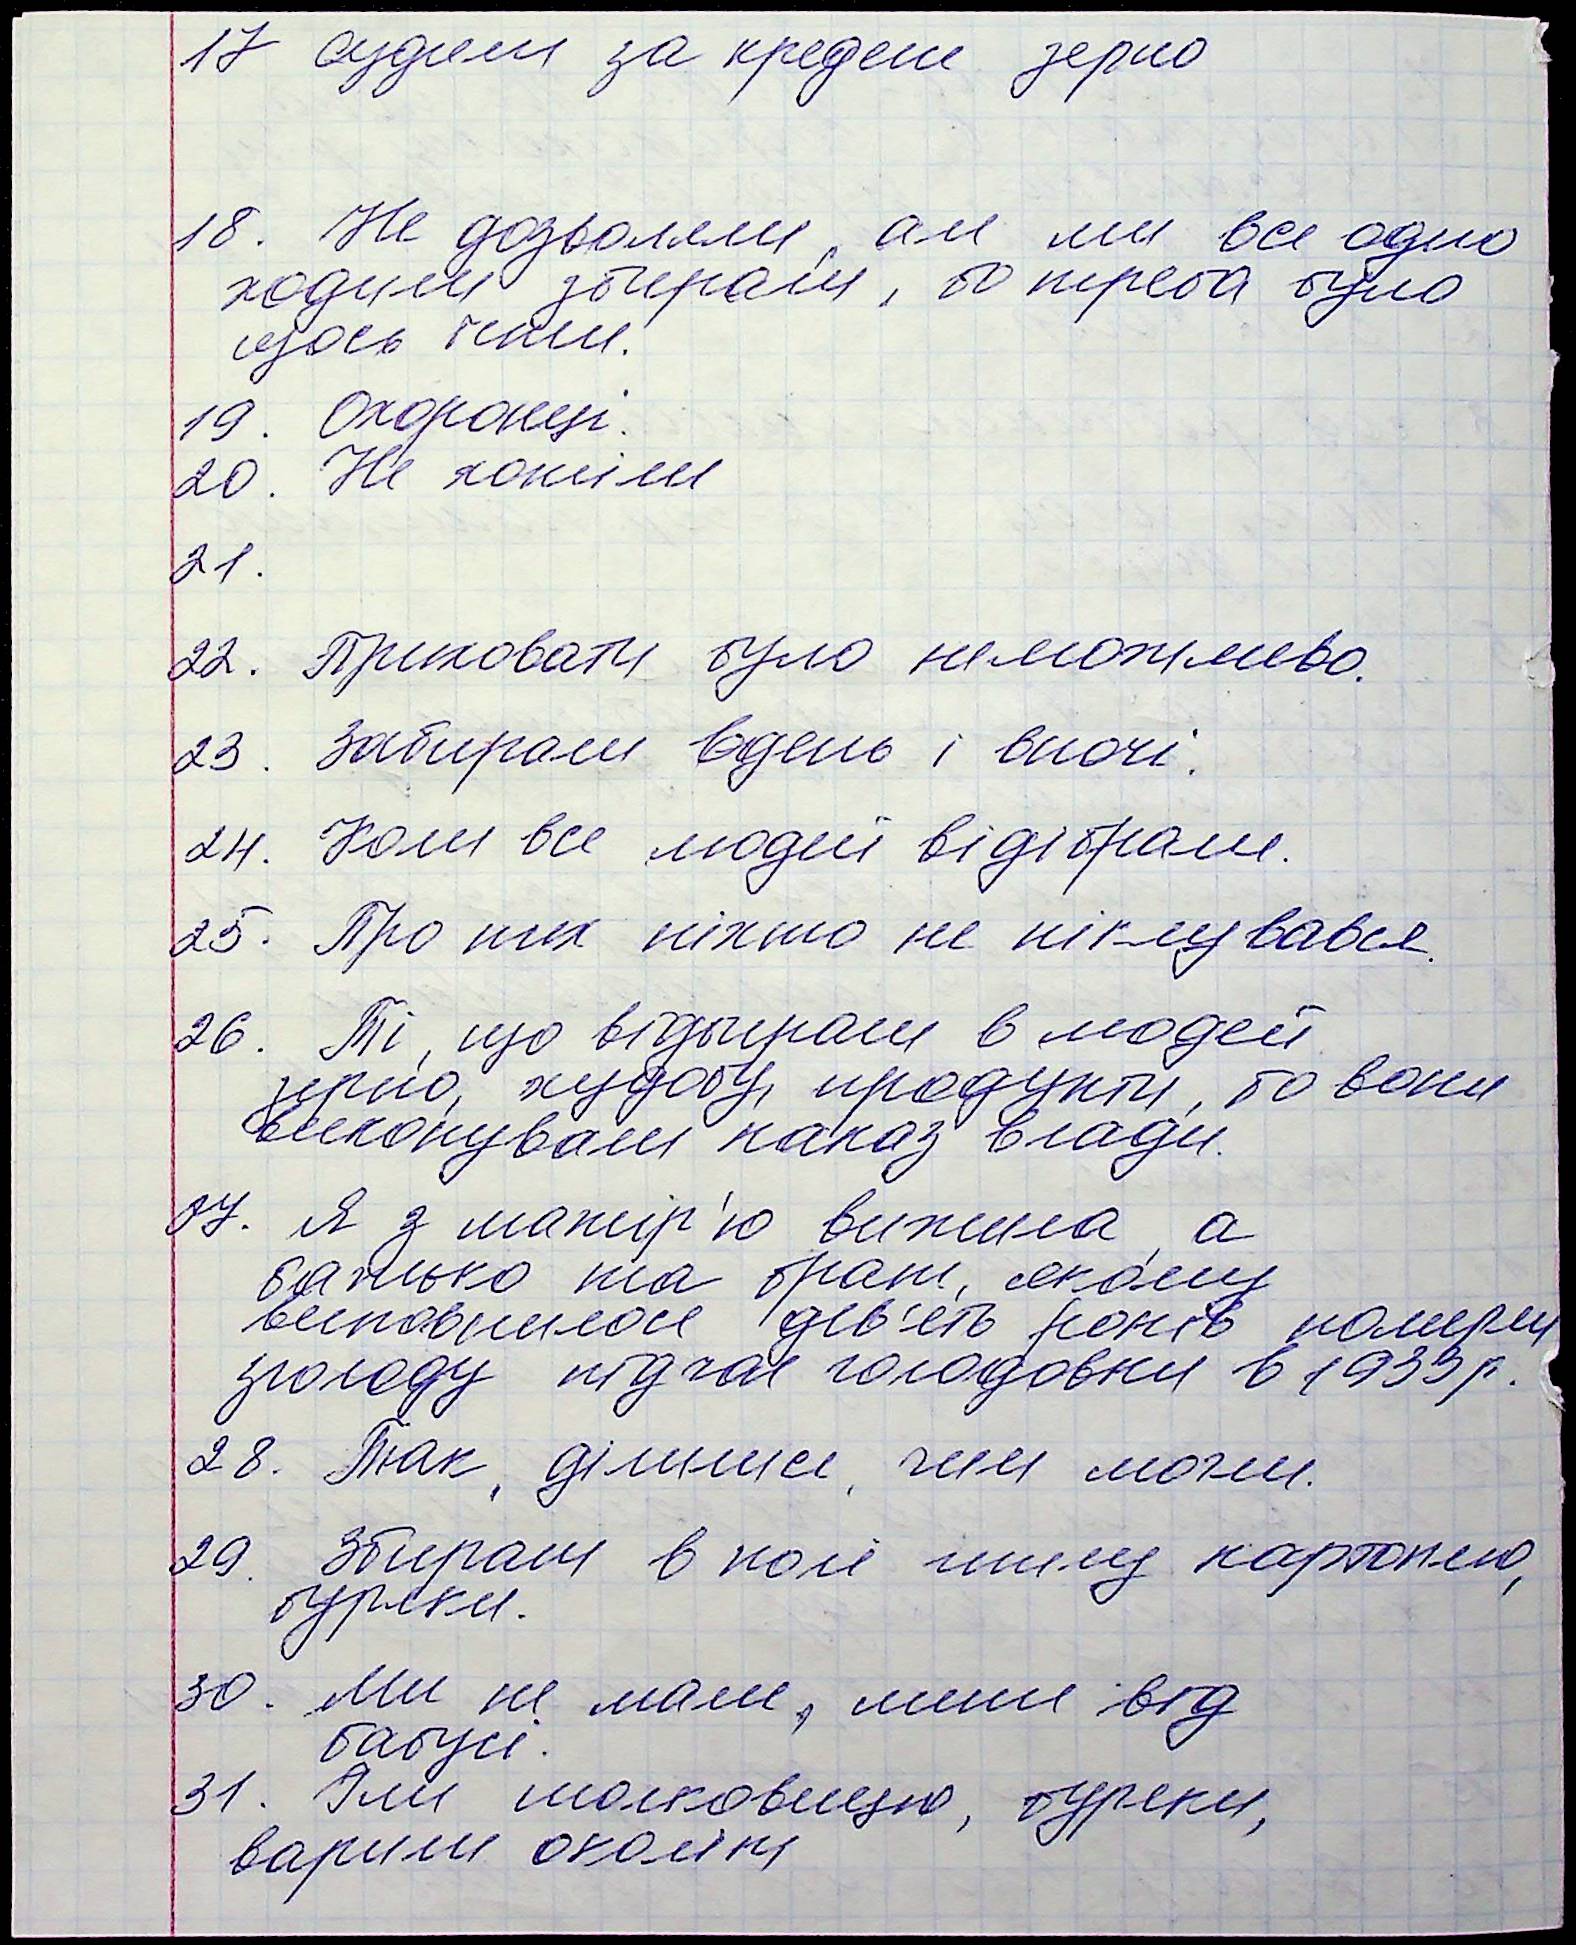 17 судили за крадене зерно
18. Не дозволяли, але ми все одно
ходили збирали, бо треба було
щось їсти.
19. Охоронці.
20. Не хотіли
21.
22. Приховати було неможливо.
23. Забирали вдень і вночі.
24. Коли все людей відібрали.
25. Про них ніхто не піклувався.
26. Ті, що відбирали в людей
зерно, худобу, продукти, бо вони
виконували наказ влади.
27. Я з матір'ю вижила, а
батько та брат, якому
виповнилося дев'ять років померли
зголоду підчас голодовки в 1933 р.
28. Так, ділилися, чим могли.
29. Збирали в полі гнилу картоплю,
буряки.
30. Ми не мали, лише від
бабусі.
31. Їли шолковицю, буряки,
варили околіки